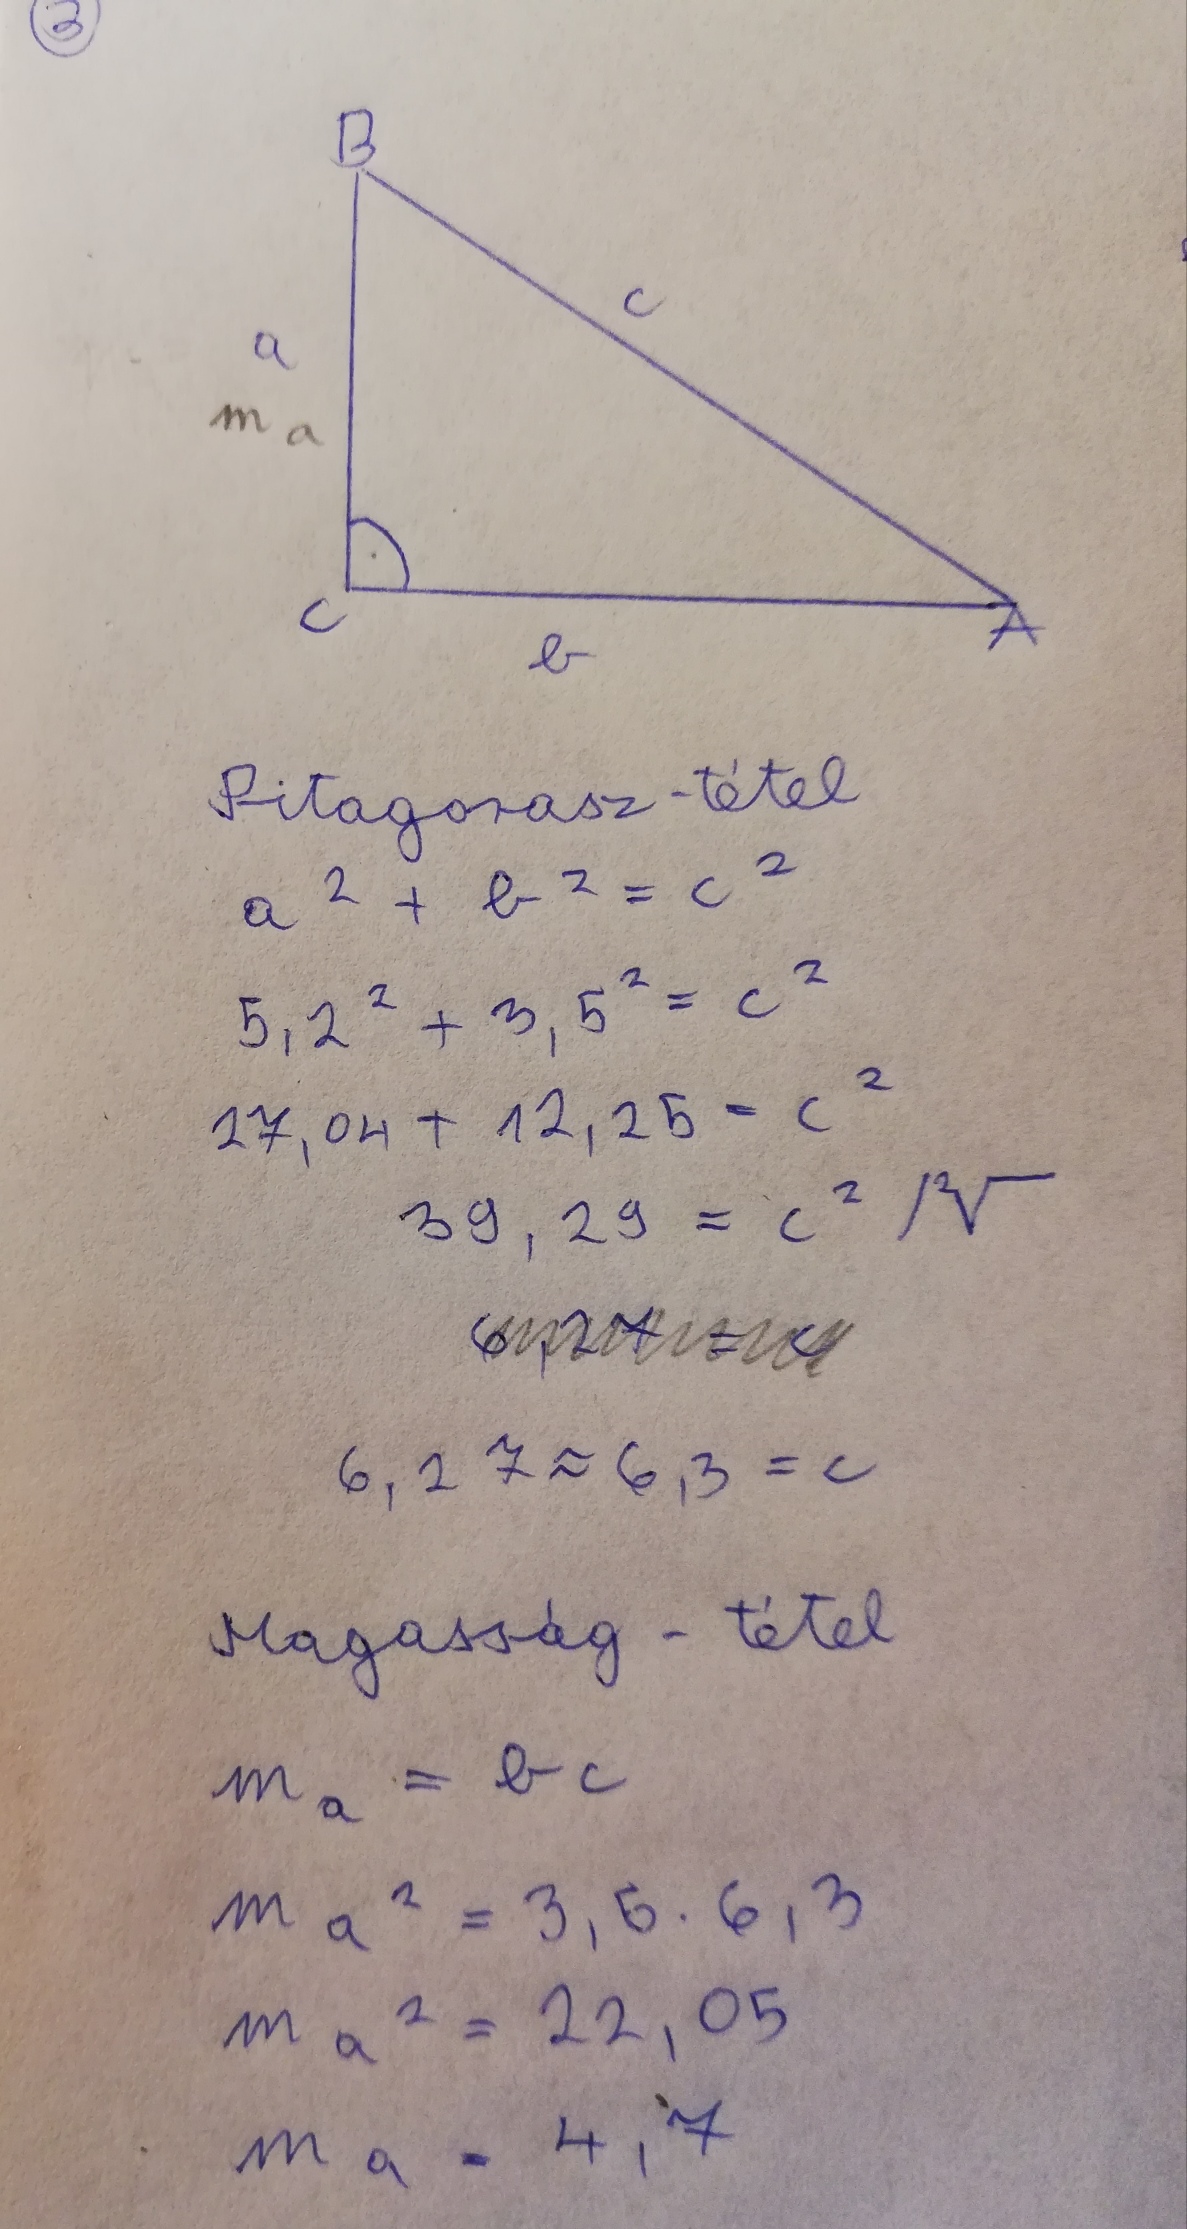 3
B
c
a
m a
C
b
A
Pitagorasz-tétel
a² + b² = c²
5,2² + 3,5² = c²
27,04 + 12,25 = c²
39,29 = c² /²√
6,27 = c
6,27 ≈ 6,3 = c
Magasság - tétel
m a = bc
m a² = 3,5 · 6,3
m a² = 22,05
m a = 4,7